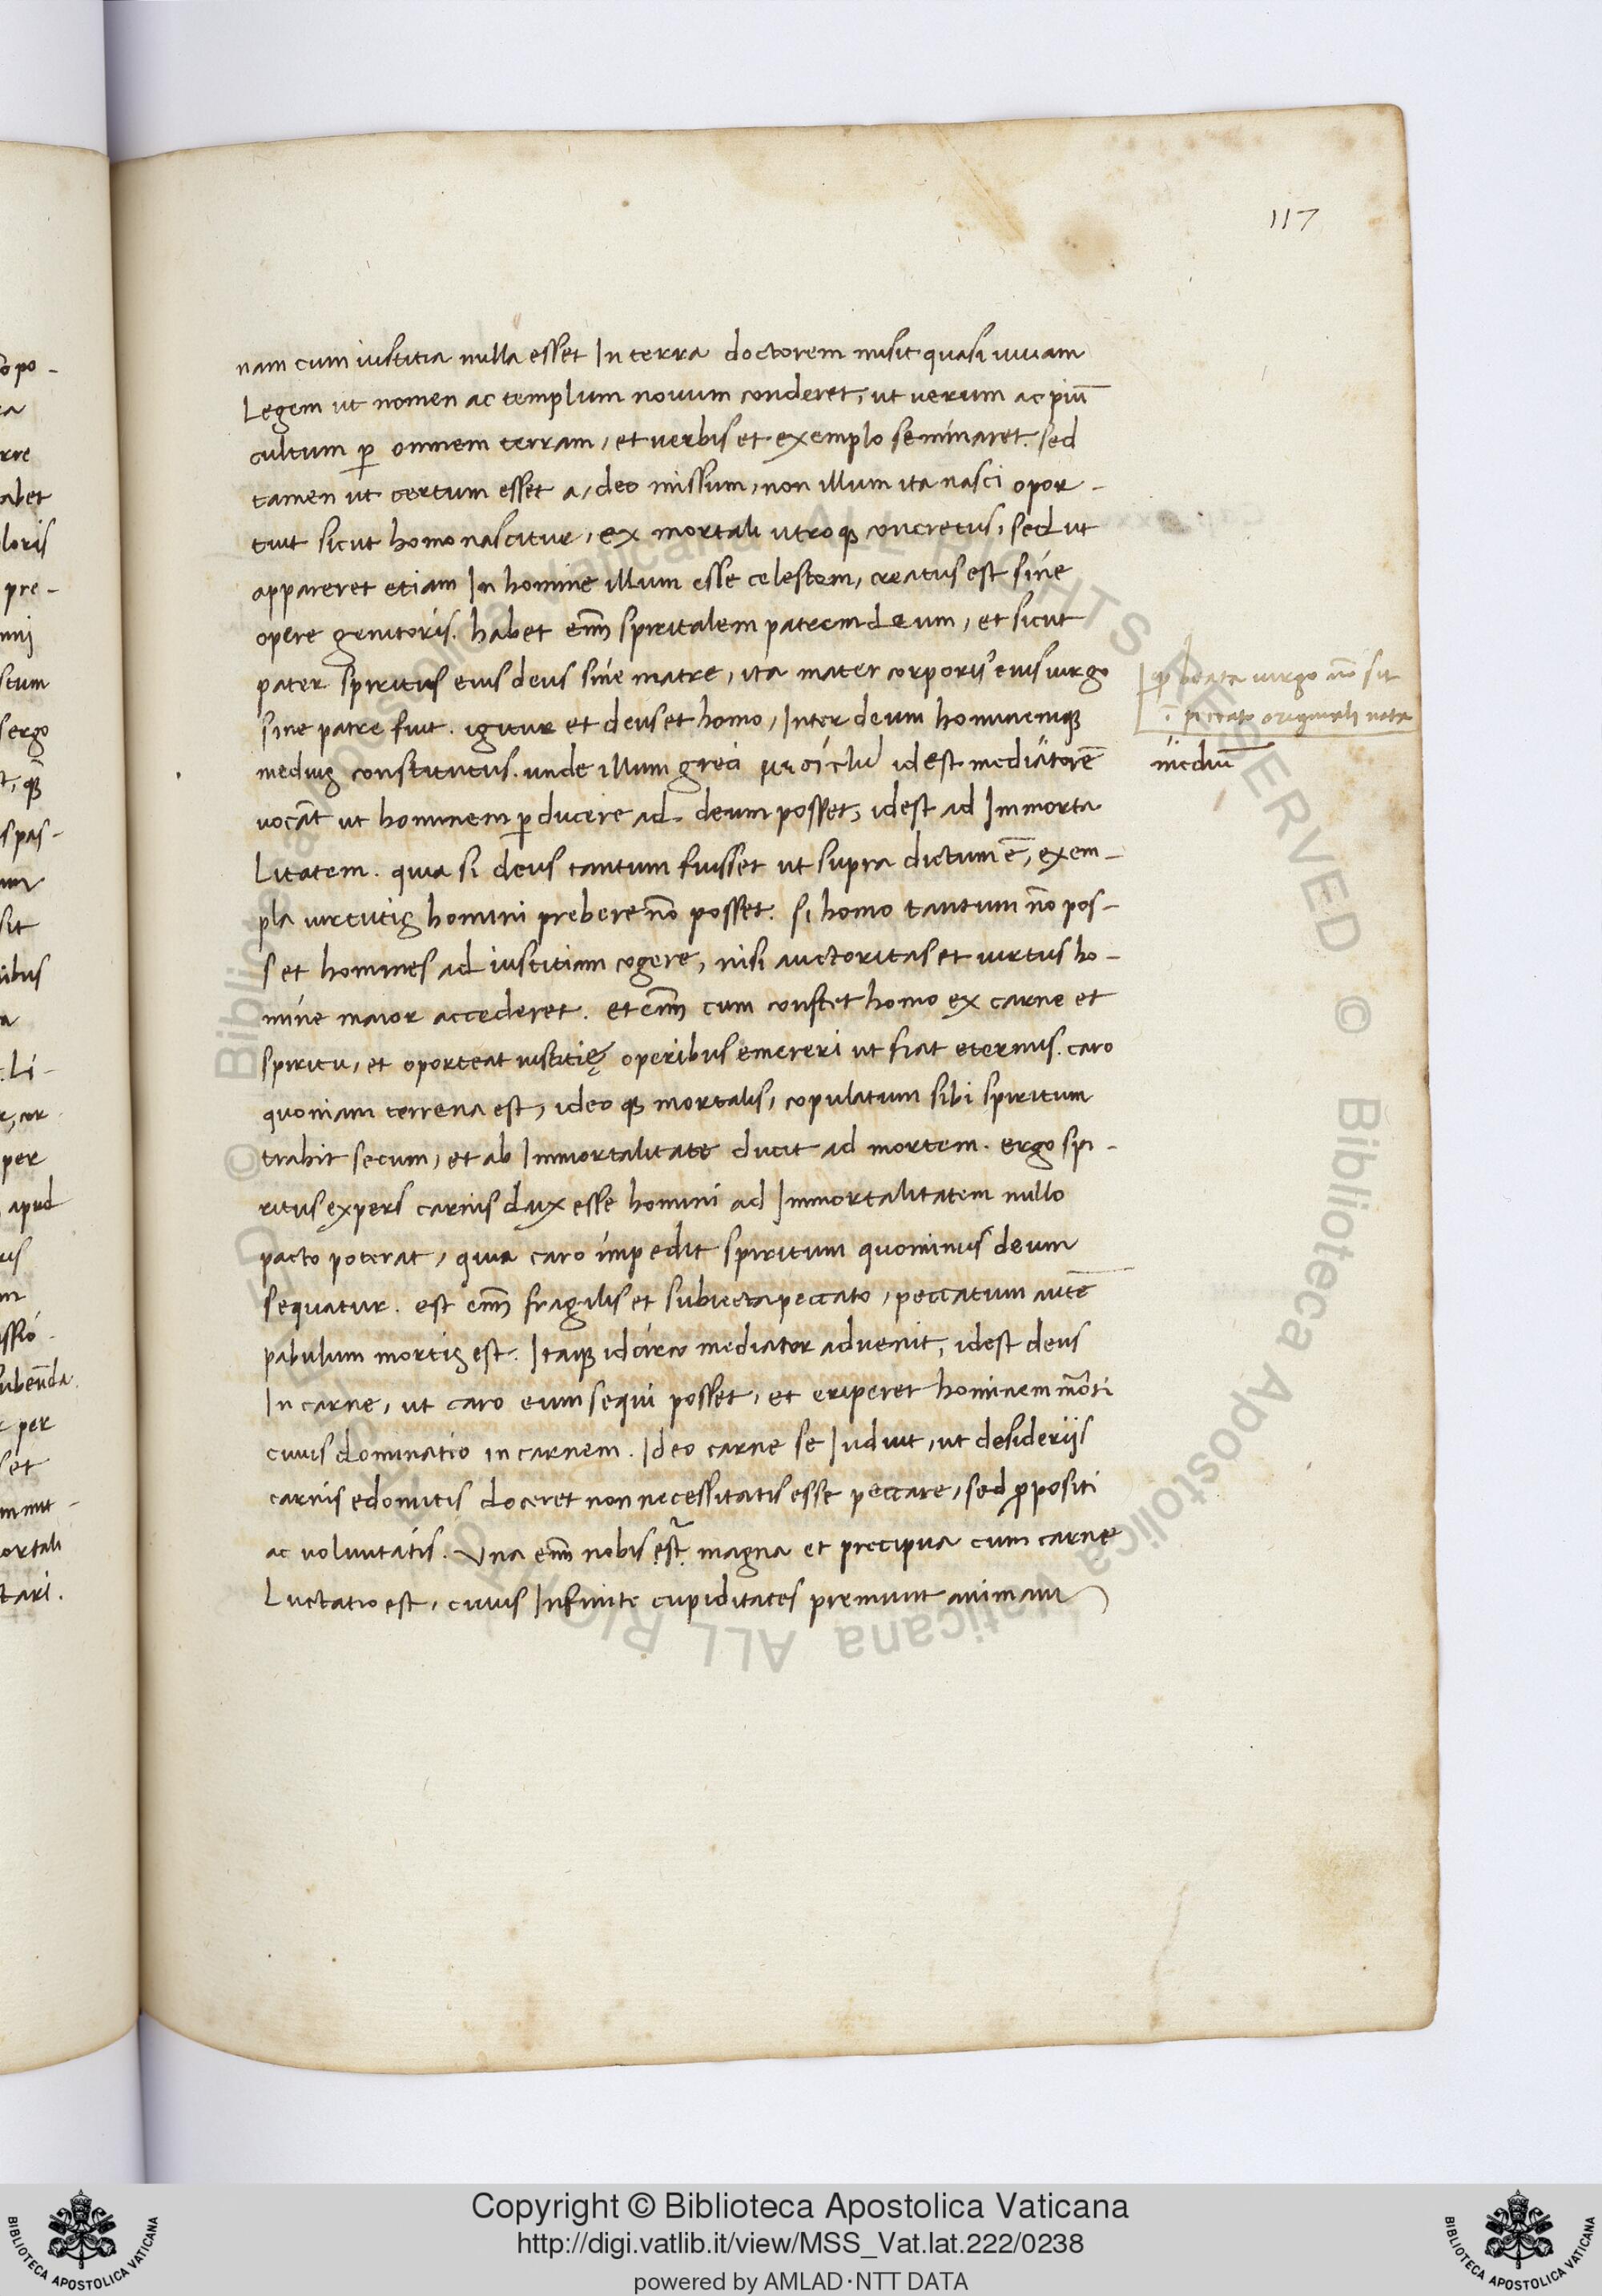 117
nam cum iustitia nulla esset In terra doctorem misit quasi uiuam
Legem ut nomen ac templum nouum conderet, ut uerum ac piū
cultum ꝑ omnem terram, et uerbis et exemplo seminaret. sed
tamen ut certum esset a, deo missum, non illum ita nasci opor-
tuit sicut homo nascitur, ex mortali utroqꝫ concretus, sed ut
appareret etiam In homine illum esse celestem, creatus est sine
opere genitoris. habet enī spiritalem patrem deum, et sicut
pater spiritus eius deus sine matre, ita mater corporis eius uirgo
sine patre fuit. igitur et deus et homo, Inter deum hominemqꝫ
medius constitutus. unde illum greci idest mediatorē
uocāt ut hominem ꝑducere ad deum posset, idest ad Immorta
Litatem. quia si deus tantum fuisset ut supra dictum ē, exem-
pla uirtutis homini prebere nō posset. si homo tantum nō pos-
set homines ad iustitiam cogere, nisi auctoritas et uirtus ho-
mine maior accederet. et enī cum constet homo ex carne et
spiritu, et oporteat iustitię operibus emereri ut fiat eternus. caro
quoniam terrena est, ideoqꝫ mortalis, copulatum sibi spiritum
trahit secum, et ab Immortalitate ducit ad mortem. ergo spi-
ritus expers carnis dux esse homini ad Immortalitatem nullo
pacto poterat, quia caro impedit spiritum quominus deum
sequatur. est enī fragilis et subiecta peccato, peccatum autē
pabulum mortis est. Itaqꝫ idcirco mediator aduenit, idest deus
In carne, ut caro eum sequi posset, et eriperet hominem morti
cuius dominatio in carnem. Ideo carne se Induit, ut desiderijs
carnis edomitis doceret non necessitatis esse peccare, sed ꝓpositi
ac voluntatis. Una enī nobis est magna et precipua cum carne
Luctatio est, cuius Infinite cupiditates premunt animam
beata uirgo nō sit
ī peccato originali nata
mediū
Copyright © Biblioteca Apostolica Vaticana
http://digi.vatlib.it/view/MSS_Vat.lat.222/0238
powered by AMLAD·NTT DATA